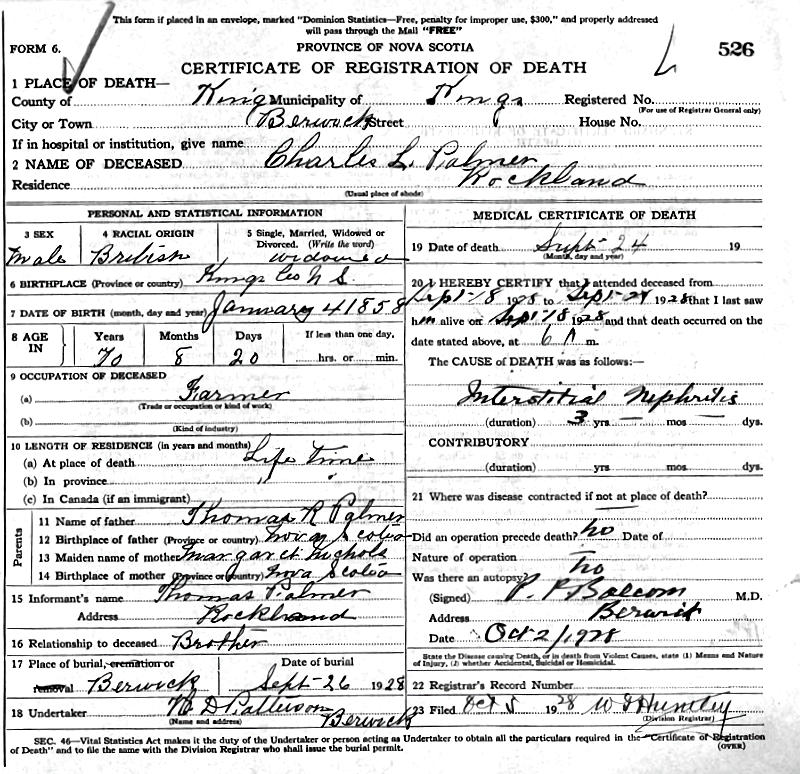 This form if placed in an envelope, marked "Dominion Statistics—Free, penalty for improper use, $300," and properly addressed
will pass through the Mail "FREE"
FORM 6.
PROVINCE OF NOVA SCOTIA
526
CERTIFICATE OF REGISTRATION OF DEATH
1 PLACE OF DEATH—
County of King Municipality of Kings Registered No.
(For use of Registrar General only)
City or Town Berwick Street House No.
If in hospital or institution, give name
2 NAME OF DECEASED Charles L. Palmer
Residence Rockland
(Usual place of abode)
PERSONAL AND STATISTICAL INFORMATION
3 SEX 4 RACIAL ORIGIN 5 Single, Married, Widowed or
Divorced. (Write the word)
Male British widowed
6 BIRTHPLACE (Province or country) Kings Co N S.
7 DATE OF BIRTH (month, day and year) January 4 1858
8 AGE IN Years Months Days If less than one day,
70 8 20 hrs. or min.
9 OCCUPATION OF DECEASED
(a) Farmer
(Trade or occupation or kind of work)
(b)
(Kind of industry)
10 LENGTH OF RESIDENCE (in years and months)
(a) At place of death Life time
(b) In province " "
(c) In Canada (if an immigrant)
Parents
11 Name of father Thomas R Palmer
12 Birthplace of father (Province or country) Nova Scotia
13 Maiden name of mother Margaret Nichols
14 Birthplace of mother (Province or country) Nova Scotia
15 Informant's name Thomas Palmer
Address Rockland
16 Relationship to deceased Brother
17 Place of burial, cremation or Date of burial
removal Berwick Sept 26 1928
18 Undertaker D Patterson
(Name and address) Berwick
MEDICAL CERTIFICATE OF DEATH
19 Date of death Sept 24 19
(Month, day and year)
20 I HEREBY CERTIFY that I attended deceased from
Sept 18 1928 to Sept 24 1928 that I last saw
him alive on Sept 18 1928 and that death occurred on the
date stated above, at 6 A m.
The CAUSE of DEATH was as follows:—
Interstitial Nephritis
(duration) 3 yrs — mos — dys.
CONTRIBUTORY
(duration) yrs mos dys.
21 Where was disease contracted if not at place of death?
Did an operation precede death? no Date of
Nature of operation —
Was there an autopsy no
(Signed) P. P. Balcom M.D.
Address Berwick
Date Oct 2/1928
State the Disease causing Death, or in death from Violent Causes, state (1) Means and Nature
of Injury, (2) whether Accidental, Suicidal or Homicidal.
22 Registrar's Record Number
23 Filed Oct 5 1928 W
(Division Registrar)
SEC. 46—Vital Statistics Act makes it the duty of the Undertaker or person acting as Undertaker to obtain all the particulars required in the "Certificate of Registration
of Death" and to file the same with the Division Registrar who shall issue the burial permit. (OVER)